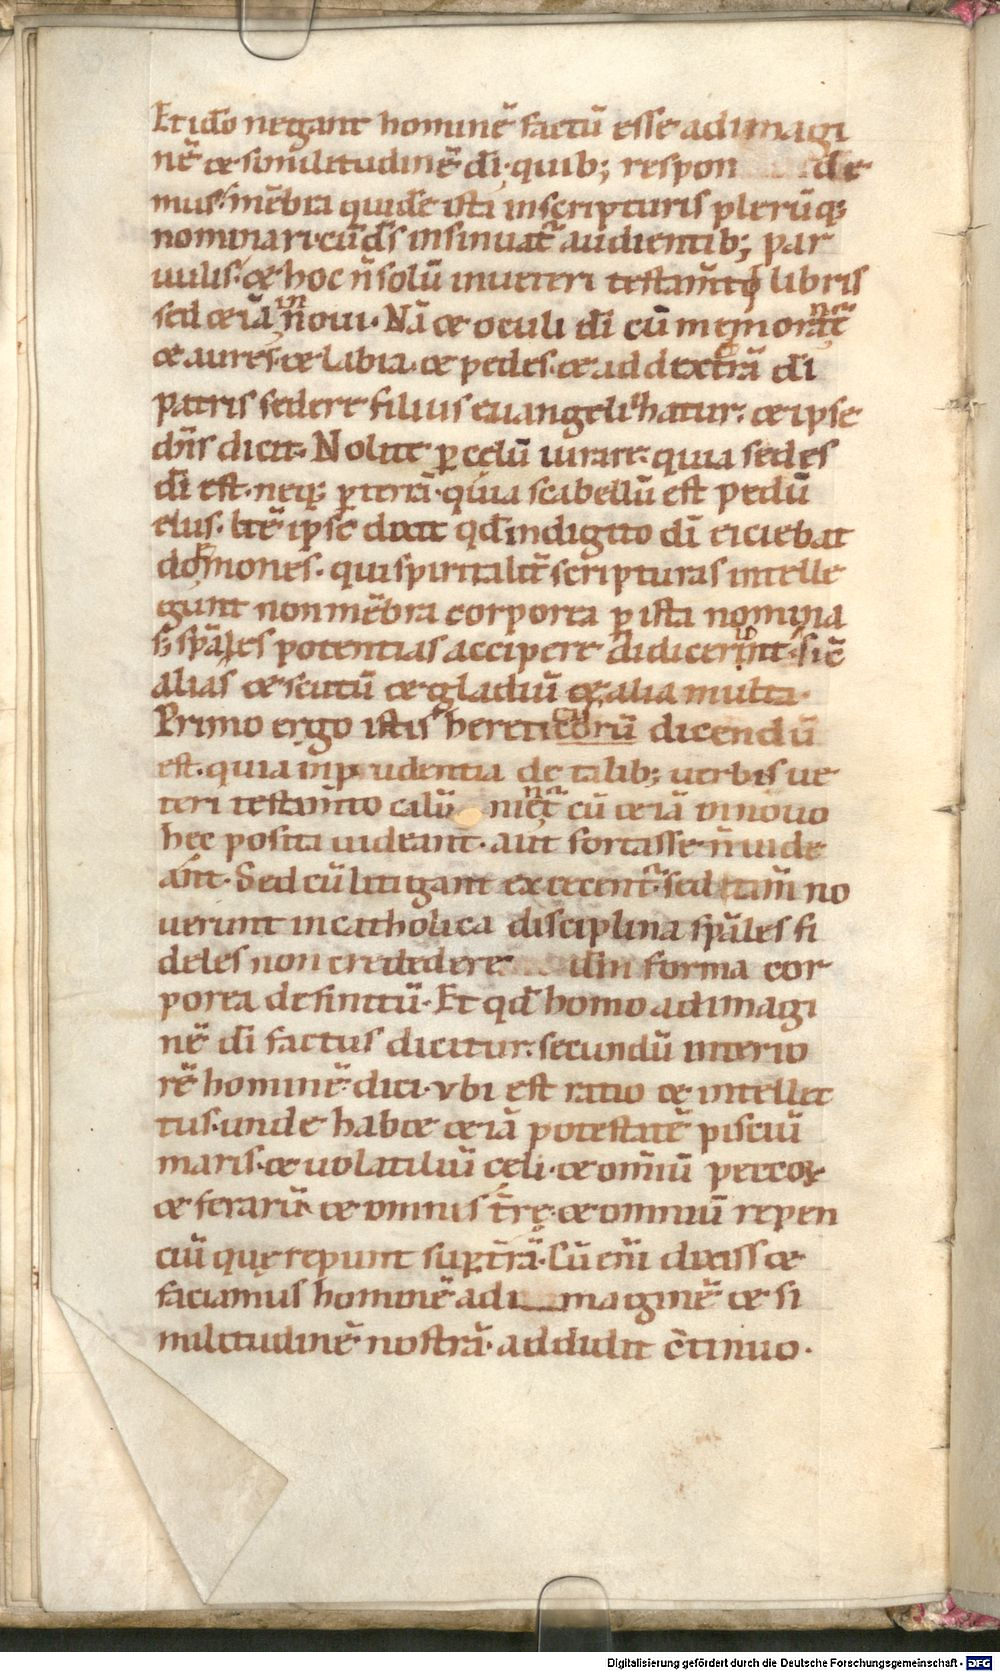 Et ido negant hominē factū esse ad imagi
nē & similitudinē dī· quib; respon de
mus· mēbra quidē ista in scripturis plerūq;
nominari· cū ds insinuat̃ audientib; par
uulis· & hoc ñ solū in ueteri testam̄to libris
sed & iā in noui· Nā & oculi dī cū memorant̃
& aures· & labia· & pedes· & ad dextrā dī
patris sedere filius euangelihatur· & ipse
dñs dicit· Nolite ꝑ celū iurare· quia sedes
dī est· neq; ꝑ terrā· quia scabellū est pedū
eius· Itē ipse dixit qđ in digito dī eiciebat
demones· qui spiritalit̃ scripturas intelle
gunt non mēbra corporea ꝑ ista nomina
s; spāles potentias accipere didicerunt· sic̄
alias & scutū & gladiū & alia multa·
Primo ergo istis hereticorū dicendū
est· quia inprudentia de talib; uerbis ue
teri testam̄to calū niant̃ cū & iā in nouo
hec posita uideant· aut fortasse ñ uide
ant· Sed cū litigant excecent̃· sed tam̄ no
uerint in catholica disciplina spāles fi
deles non credere dm̄ forma cor
porea definitū· Et qđ homo ad imagi
nē dī factus dicitur· secundū interio
rē hominē dici· vbi est ratio & intellec
tus· unde hab& & iā potestatē pisciū
maris· & uolatiliū celi· & om̄iū pecoꝝ
& ferarū· & omnis t̄rę· & omniū repen
ciū quę repunt suꝑ t̄rā· Cū eni dixiss&
faciamus hominē ad i maginē & si
militudinē nostrā· addidit c̄tinuo·
Digitalisierung gefördert durch die Deutsche Forschungsgemeinschaft - DFG